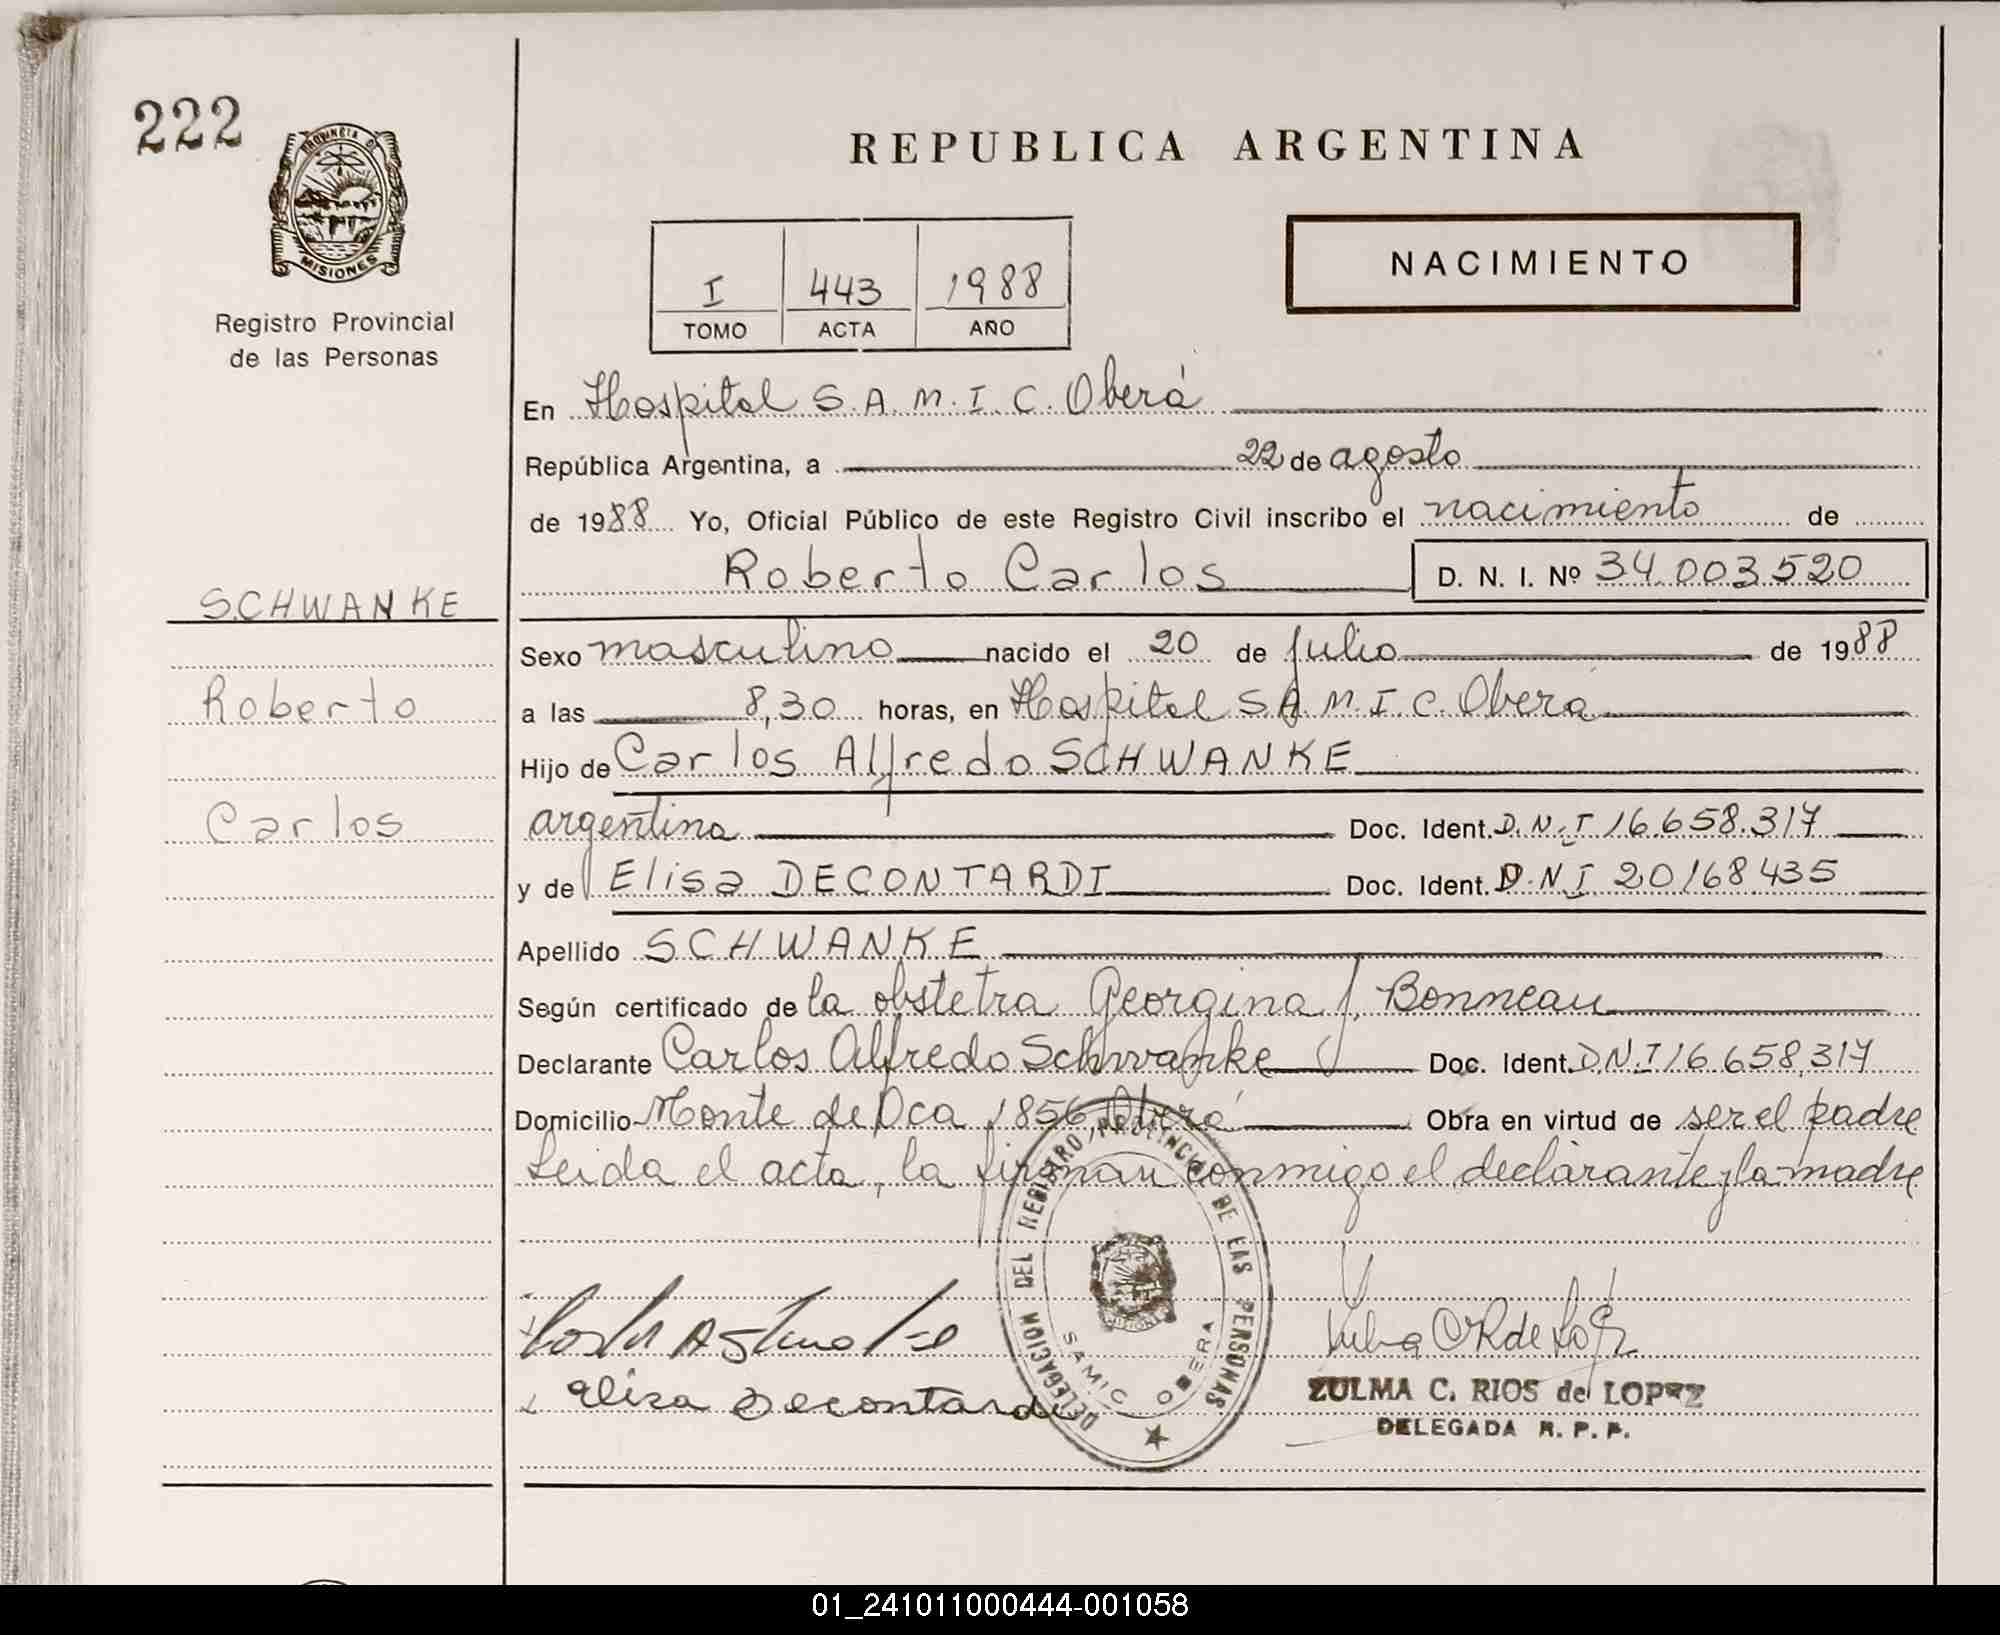 222
PROVINCIA DE
MISIONES
Registro Provincial
de las Personas
SCHWANKE
Roberto
Carlos
REPUBLICA ARGENTINA
I 443 1988
TOMO ACTA AÑO
NACIMIENTO
En Hospital S.A.M.I.C. Oberá
República Argentina, a 22 de agosto
de 1988 Yo, Oficial Público de este Registro Civil inscribo el nacimiento de
Roberto Carlos D. N. I. Nº 34.003.520
Sexo masculino nacido el 20 de julio de 1988
a las 8,30 horas, en Hospital S.A.M.I.C. Oberá
Hijo de Carlos Alfredo SCHWANKE
argentina Doc. Ident. D.N.I 16.658.317
y de Elisa DECONTARDI Doc. Ident. D.N.I 20168435
Apellido SCHWANKE
Según certificado de la obstetra Georgina J. Bonneau
Declarante Carlos Alfredo Schwanke Doc. Ident. D.N.I 16.658.317
Domicilio Monte de Oca 1856, Oberá Obra en virtud de ser el padre
Leida el acta, la firman conmigo el declarante y la madre
Elisa Decontardi
DELEGACION DEL REGISTRO PROVINCIAL DE LAS PERSONAS
SAMIC OBERA
ZULMA C. RIOS de LOPEZ
DELEGADA R. P. P.
01_241011000444-001058